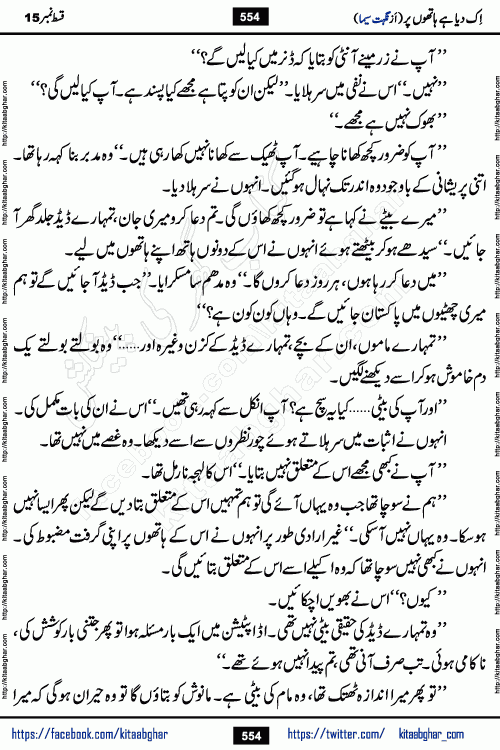 اِک دیا ہے ہاتھوں پر (از نگہت سیما) 554 قسط نمبر 15
’’آپ نے زرمینے آنٹی کو بتایا کہ ڈنر میں کیا لیں گے؟‘‘
’’نہیں۔‘‘ اس نے نفی میں سر ہلایا۔ ’’لیکن ان کو پتا ہے مجھے کیا پسند ہے۔ آپ کیا لیں گی؟‘‘
’’بھوک نہیں ہے مجھے۔‘‘
’’آپ کو ضرور کچھ کھانا چاہیے۔ آپ ٹھیک سے کھانا نہیں کھا رہی ہیں۔‘‘ وہ مدبر بنا کہہ رہا تھا۔
اتنی پریشانی کے باوجود وہ اندر تک نہال ہو گئیں۔ انہوں نے سر ہلا دیا۔
’’میرے بیٹے نے کہا ہے تو ضرور کچھ کھاؤں گی۔ تم دعا کرو میری جان، تمہارے ڈیڈ جلد گھر آ
جائیں۔‘‘ سیدھے ہو کر بیٹھتے ہوئے انہوں نے اس کے دونوں ہاتھ اپنے ہاتھوں میں لیے۔
’’میں دعا کر رہا ہوں، ہر روز دعا کروں گا۔‘‘ وہ مدھم سا مسکرایا۔ ’’جب ڈیڈ آ جائیں گے تو ہم
میری چھٹیوں میں پاکستان جائیں گے۔ وہاں کون کون ہے؟‘‘
’’تمہارے ماموں، ان کے بچے، تمہارے ڈیڈ کے کزن وغیرہ اور......‘‘ وہ بولتے بولتے یک
دم خاموش ہو کر اسے دیکھنے لگیں۔
’’اور آپ کی بیٹی......کیا یہ سچ ہے؟ آپ انکل سے کہہ رہی تھیں۔‘‘ اس نے ان کی بات مکمل کی۔
انہوں نے اثبات میں سر ہلاتے ہوئے چور نظروں سے اسے دیکھا۔ وہ غصے میں نہیں تھا۔
’’آپ نے کبھی مجھے اس کے متعلق نہیں بتایا۔‘‘ اس کا لہجہ نارمل تھا۔
’’ہم نے سوچا تھا جب وہ یہاں آئے گی تو ہم تمہیں اس کے متعلق بتا دیں گے لیکن پھر ایسا نہیں
ہو سکا۔ وہ یہاں نہیں آ سکی۔‘‘ غیر ارادی طور پر انہوں نے اس کے ہاتھوں پر اپنی گرفت مضبوط کی۔
انہوں نے کبھی نہیں سوچا تھا کہ وہ اکیلے اسے اس کے متعلق بتائیں گی۔
’’کیوں؟‘‘ اس نے بھویں اچکائیں۔
’’وہ تمہارے ڈیڈ کی حقیقی بیٹی نہیں تھی۔ اڈاپٹیشن میں ایک بار مسئلہ ہوا تو پھر جتنی بار کوشش کی،
ناکامی ہوئی۔ تب صرف آنی تھی، تم پیدا نہیں ہوئے تھے۔‘‘
’’تو پھر میرا اندازہ ٹھیک تھا، وہ مام کی بیٹی ہے۔ مانوش کو بتاؤں گا تو وہ حیران ہو گی کہ میرا
https://facebook.com/kitaabghar 554 https://twitter.com/ kitaabghar_com
http://kitaabghar.com